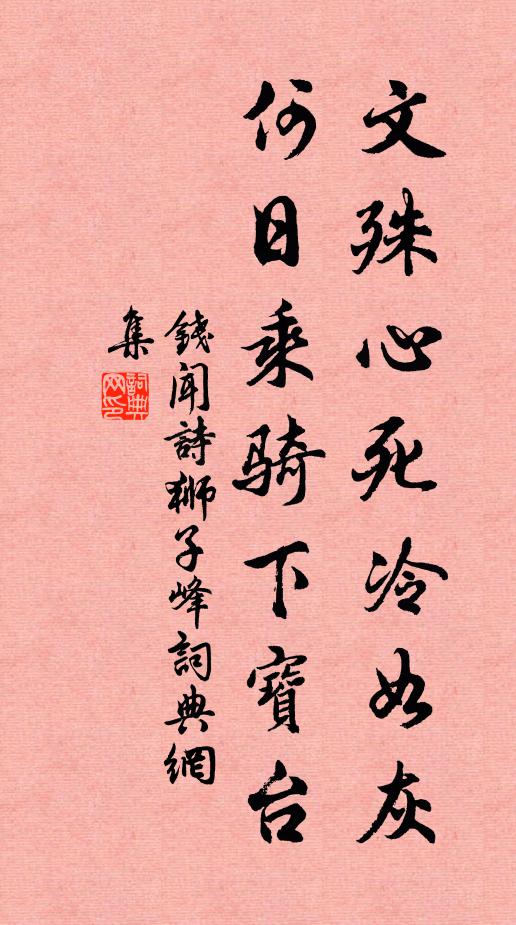 文殊心死冷如灰
何日乘骑下寶台
錢闻詩狮子峰詞典網
集
詞典網印